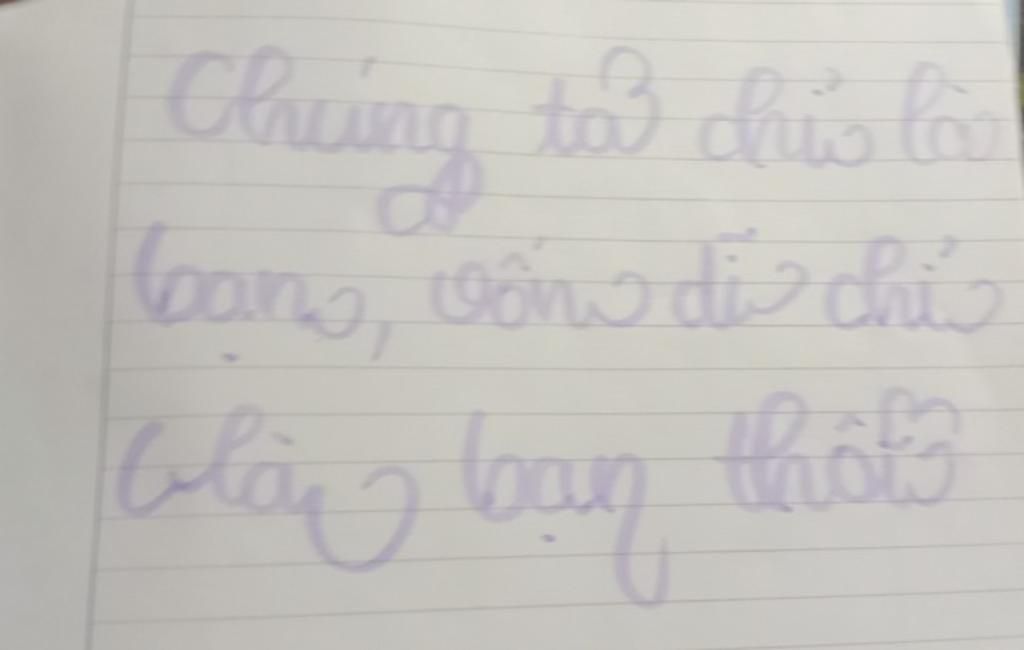 Chúng ta chỉ là
bạn, vốn dĩ chỉ
là bạn thôi